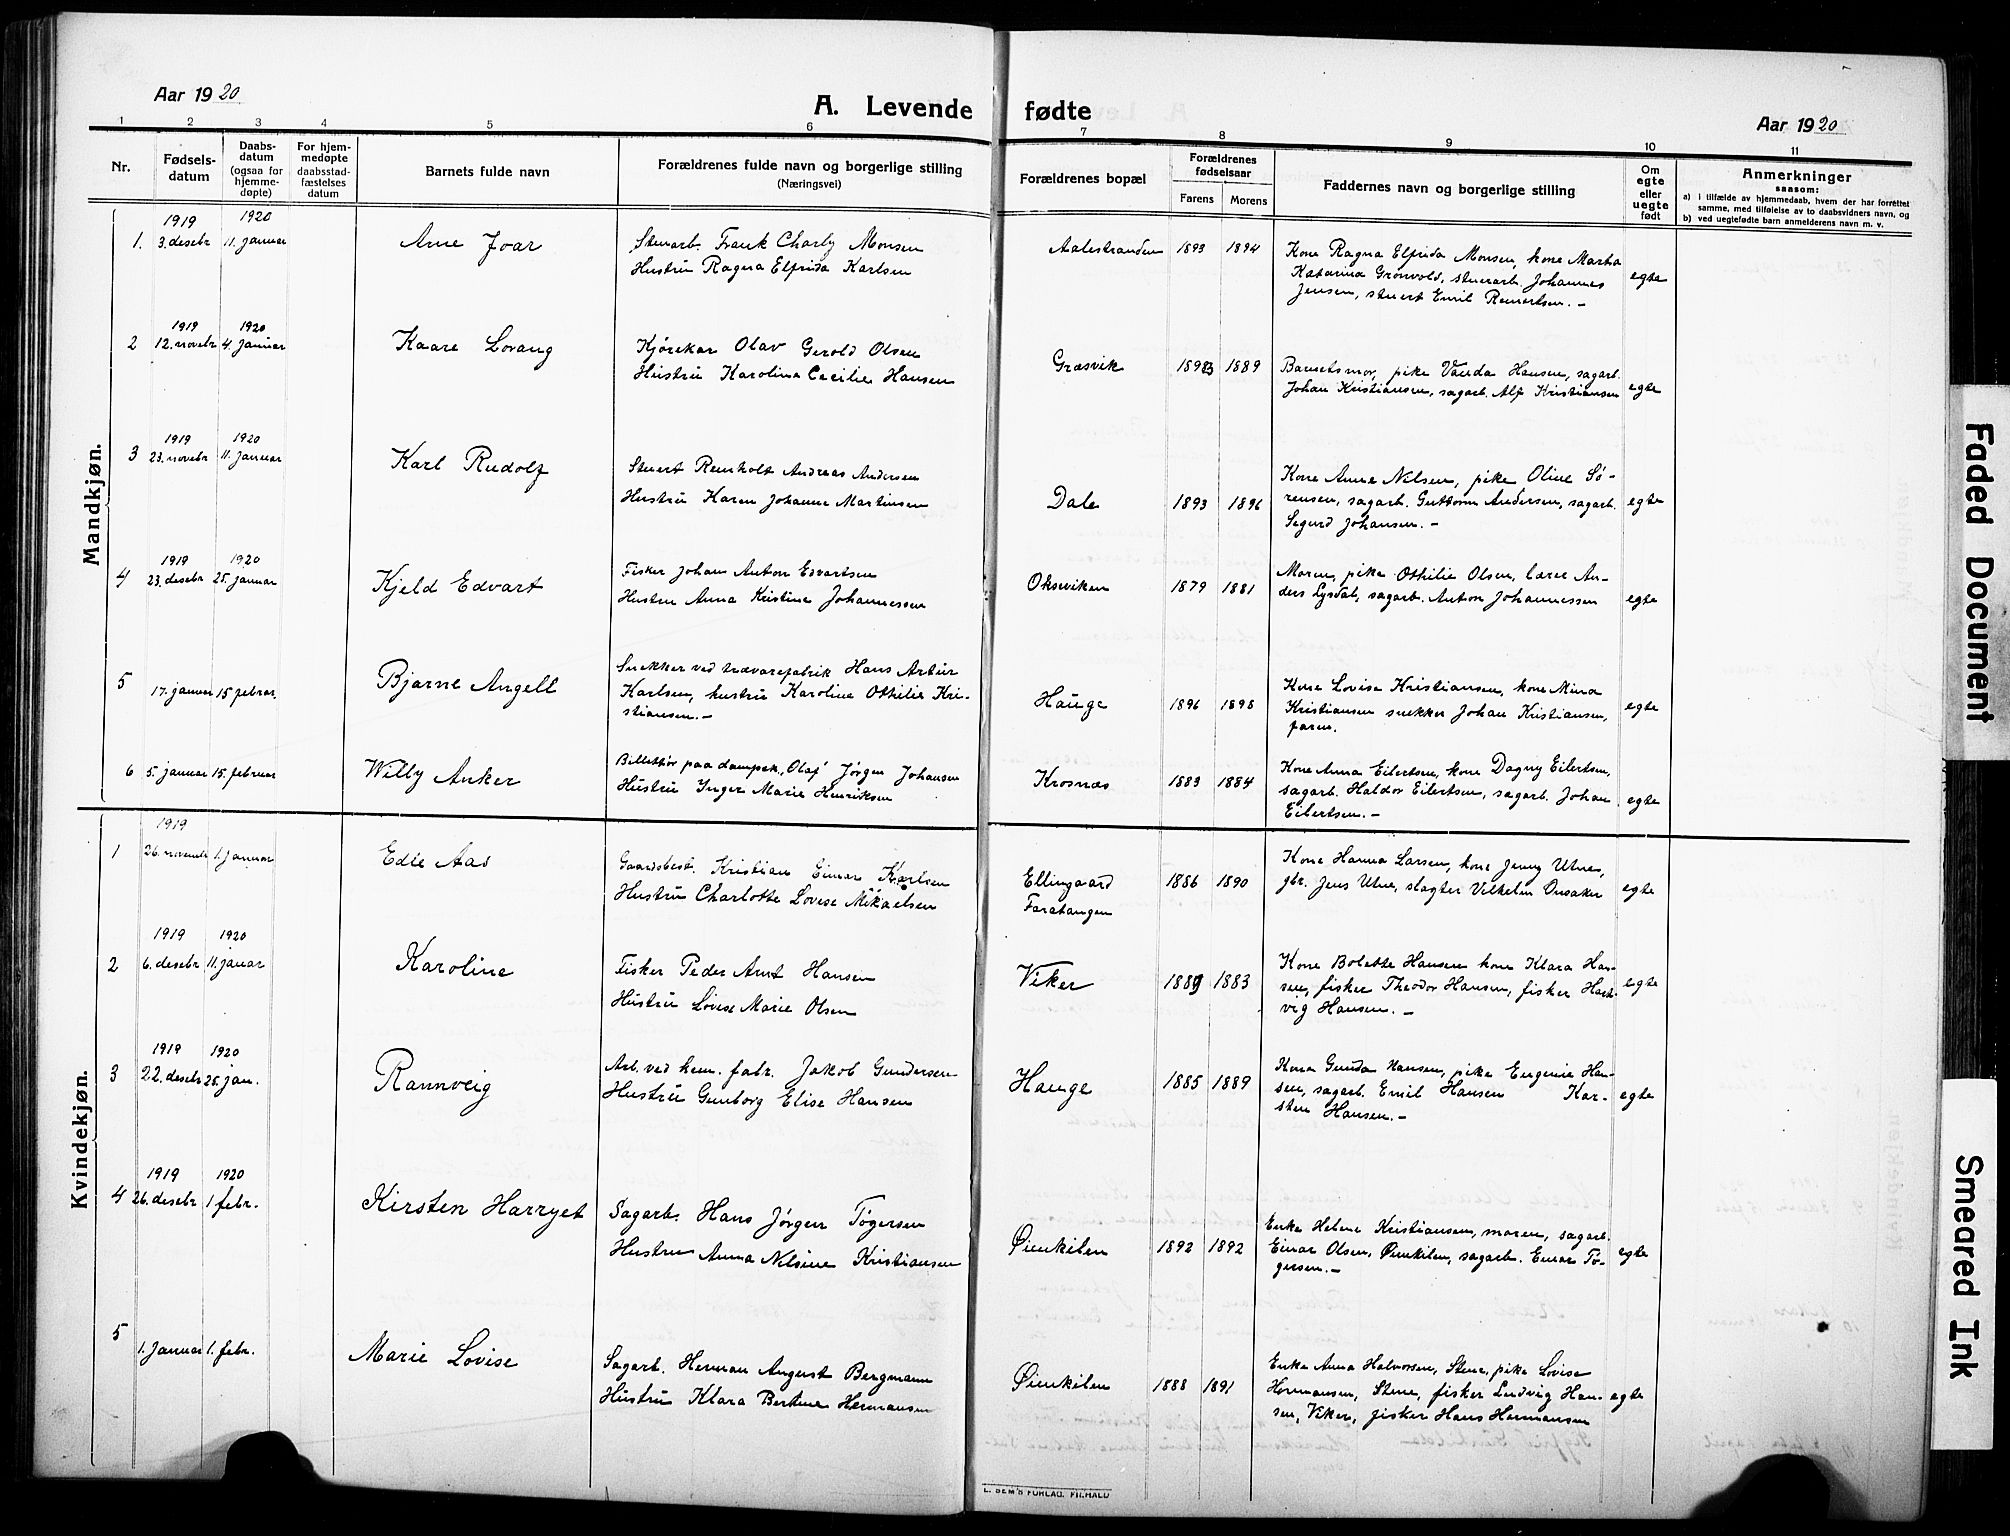 Aar 1920.
A. Levende fødte
Aar 1920
1 2 3 4 5 6 7 8 9 10 11
Nr.
Fødsels-
datum
Daabs-
datum
(ogsaa for
hjemme-
døpte)
For hjem-
medøpte
daabsstad-
fæstelses
datum
Barnets fulde navn
Forældrenes fulde navn og borgerlige stilling
(Næringsvei)
Forældrenes bopæl
Forældrenes
fødselsaar
Farens Morens
Faddernes navn og borgerlige stilling
Om
egte
eller
uegte
født
Anmerkninger
saasom:
a) i tilfælde av hjemmedaab, hvem der har forrettet
samme, med tilføielse av to daabsvidners navn, og
b) ved uegtefødte barn anmelderens navn m. v.
Mandkjøn.
1919 1920
1. 3. desebr 11. januar
Arne Joar
Stenarb. Frank Charly Monsen
Hustru Ragna Elfrida Karlsen
Aalestranden 1893 1894
Kone Ragna Elfrida Monsen, kone Martha
Katarina Grønvold, stenarb. Johannes
Jensen, stuert Emil Reinertsen. –
egte
1919 1920
2 12. novebr 4. januar
Kaare Lovang
Kjørekar Olav Gerold Olsen
Hustru Karoline Cecilie Hansen
Græsvik 1893 1889
Barnetsmor, pike Vanda Hansen, sagarb.
Johan Kristiansen, sagarb. Alf Kristiansen
egte
1919 1920
3 23. novebr 11. januar
Karl Rudolf
Stuert Reinholt Andreas Andersen
Hustru Karen Johanne Martinsen
Dale 1893 1896
Kone Anne Nilsen, pike Oline Sø-
rensen, sagarb. Guttorm Andersen, sagarb.
Sigurd Johansen. –
egte
1919 1920
4 23. desebr 25. januar
Kjeld Edvart
Fisker Johan Anton Edvartsen
Hustru Anna Kristine Johannessen
Oksviken 1879 1881
Moren, pike Othilie Olsen, lærer An-
ders Lysdal, sagarb. Anton Johannessen
egte
5 17. januar 15 februar.
Bjarne Angell
Snekker ved trævarefabrik Hans Artur
Karlsen, hustru Karoline Othilie Kri-
stiansen. –
Hauge 1896 1898
Kone Lovise Kristiansen, kone Mina
Kristiansen snekker Johan Kristiansen,
faren.
egte
6 5. januar 15. februar
Willy Anker
Billettør paa dampsk. "Olaf" Jørgen Johansen
Hustru Inger Marie Henriksen
Krosnæs 1883 1884
Kone Anna Eilertsen, kone Dagny Eilertsen,
sagarb. Haldor Eilertsen, sagarb. Johan
Eilertsen. –
egte
Kvindekjøn.
1919
1 26. novembr 1. januar
Edie Aas
Gaardsbest. Kristian Einar Karlsen
Hustru Charlotte Lovise Mikaelsen
Ellingaard
Faratangen
1886 1890
Kone Hanna Larsen, kone Jenny Utne,
gbr. Jens Utne, slagter Vilhelm Onsaker
egte
1919 1920
2 6. desebr 11. januar
Karoline
Fisker Peder Arnt Hansen
Hustru Lovise Marie Olsen
Viker 1889 1883
Kone Bolette Hansen kone Klara Han-
sen, fisker Theodor Hansen, fisker Hart-
vig Hansen. –
egte
1919 1920
3 22. desebr 25. jan.
Rannveig
Arb. ved kem. fabr. Jakob Gundersen
Hustru Gunborg Elise Hansen
Hauge 1885 1889
Kone Gunda Hansen, pike Eugenie Han-
sen, sagarb. Emil Hansen Kar-
sten Hansen. –
egte
1919 1920
4 26. desebr 1 febr.
Kirsten Harryet
Sagarb. Hans Jørgen Tøgersen
Hustru Anna Nilsine Kristiansen
Øienkilen 1892 1892
Enke Helene Kristiansen, moren, sagarb.
Einar Olsen, Øienkilen, sagarb. Einar Tø-
gersen. –
egte
5 1. januar 1. febr.
Marie Lovise
Sagarb. Herman August Bergmann
Hustru Klara Bertine Hermansen
Øienkilen 1888 1891
Enke Anna Halvorsen, Stene, pike Lovise
Hermansen, Stene, fisker Ludvig Han-
sen, Viker, fisker Hans Hermansen
egte
E. SEM'S FORLAG, FR.HALD
Faded Document
Smeared Ink